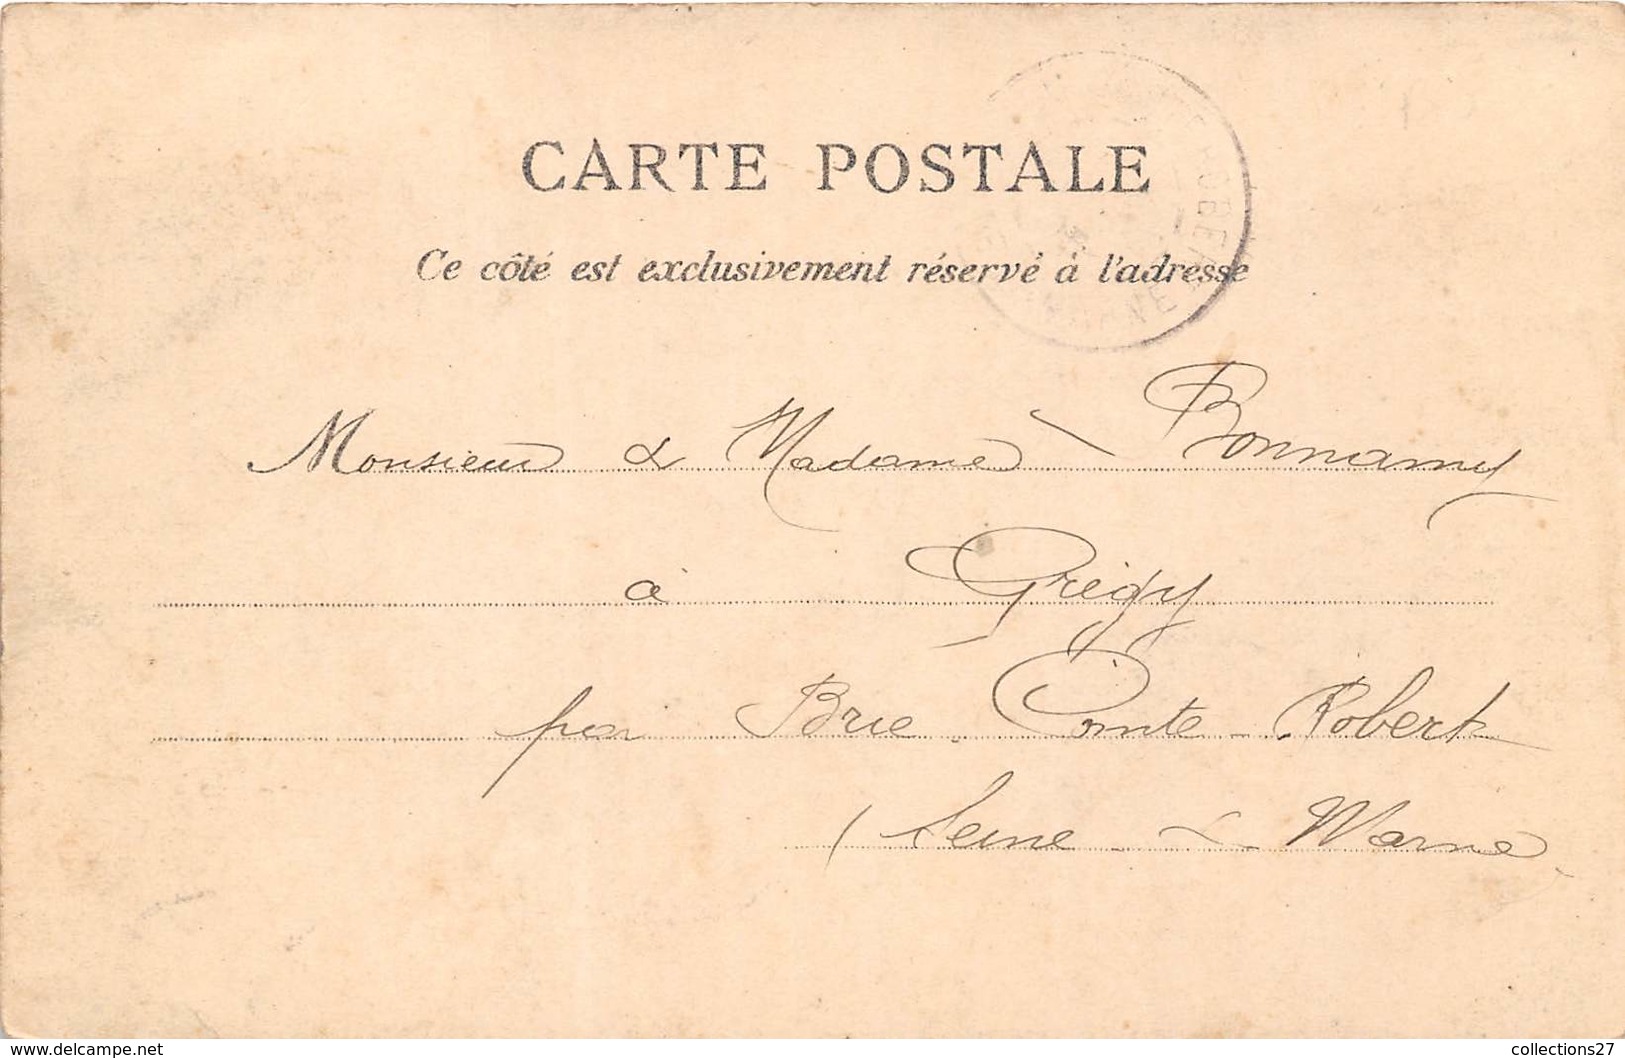 CARTE POSTALE
Ce côté est exclusivement réservé à l'adresse
Monsieur & Madame Bonnamy
à Grégy
par Brie-Comte-Robert
(Seine-&-Marne)
www.delcampe.net
collections27